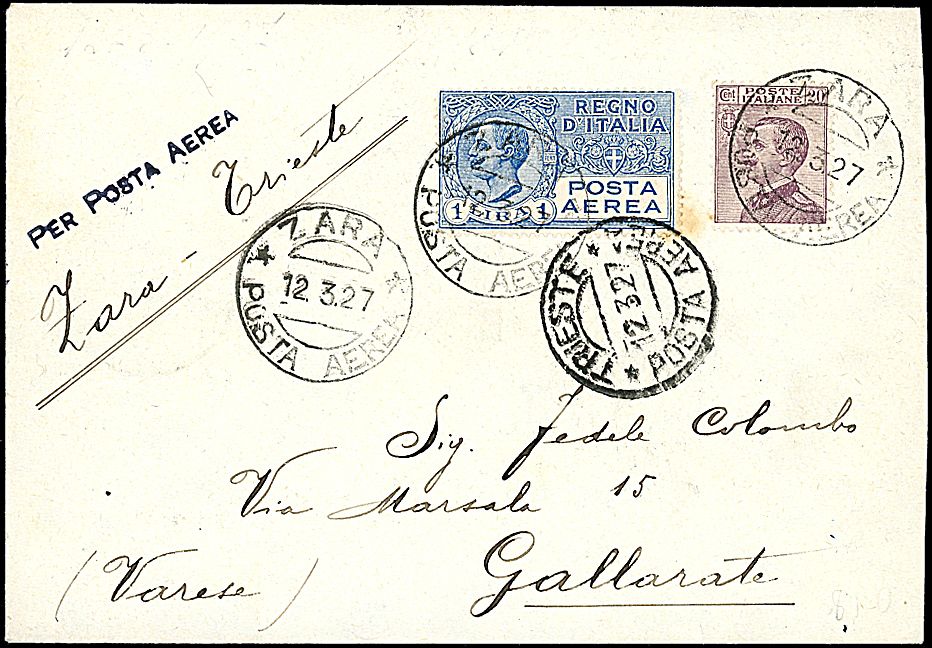 PER POSTA AEREA
Zara - Trieste
REGNO
D'ITALIA
POSTA
AEREA
1 LIRA 1
Cent POSTE 20
ITALIANE
ZARA
12.3.27
POSTA AEREA
ZARA
POSTA AEREA
TRIESTE
12.3.27
POSTA AEREA
ZARA
12.3.27
POSTA AEREA
Sig. Fedele Colombo
Via Marsala 15
Gallarate
(Varese)